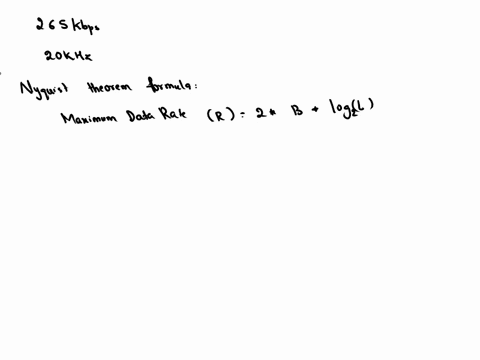 265 kbps
20KHz
Nyquist theorem formula:
Maximum Data Rate (R) = 2 * B * log₂(L)